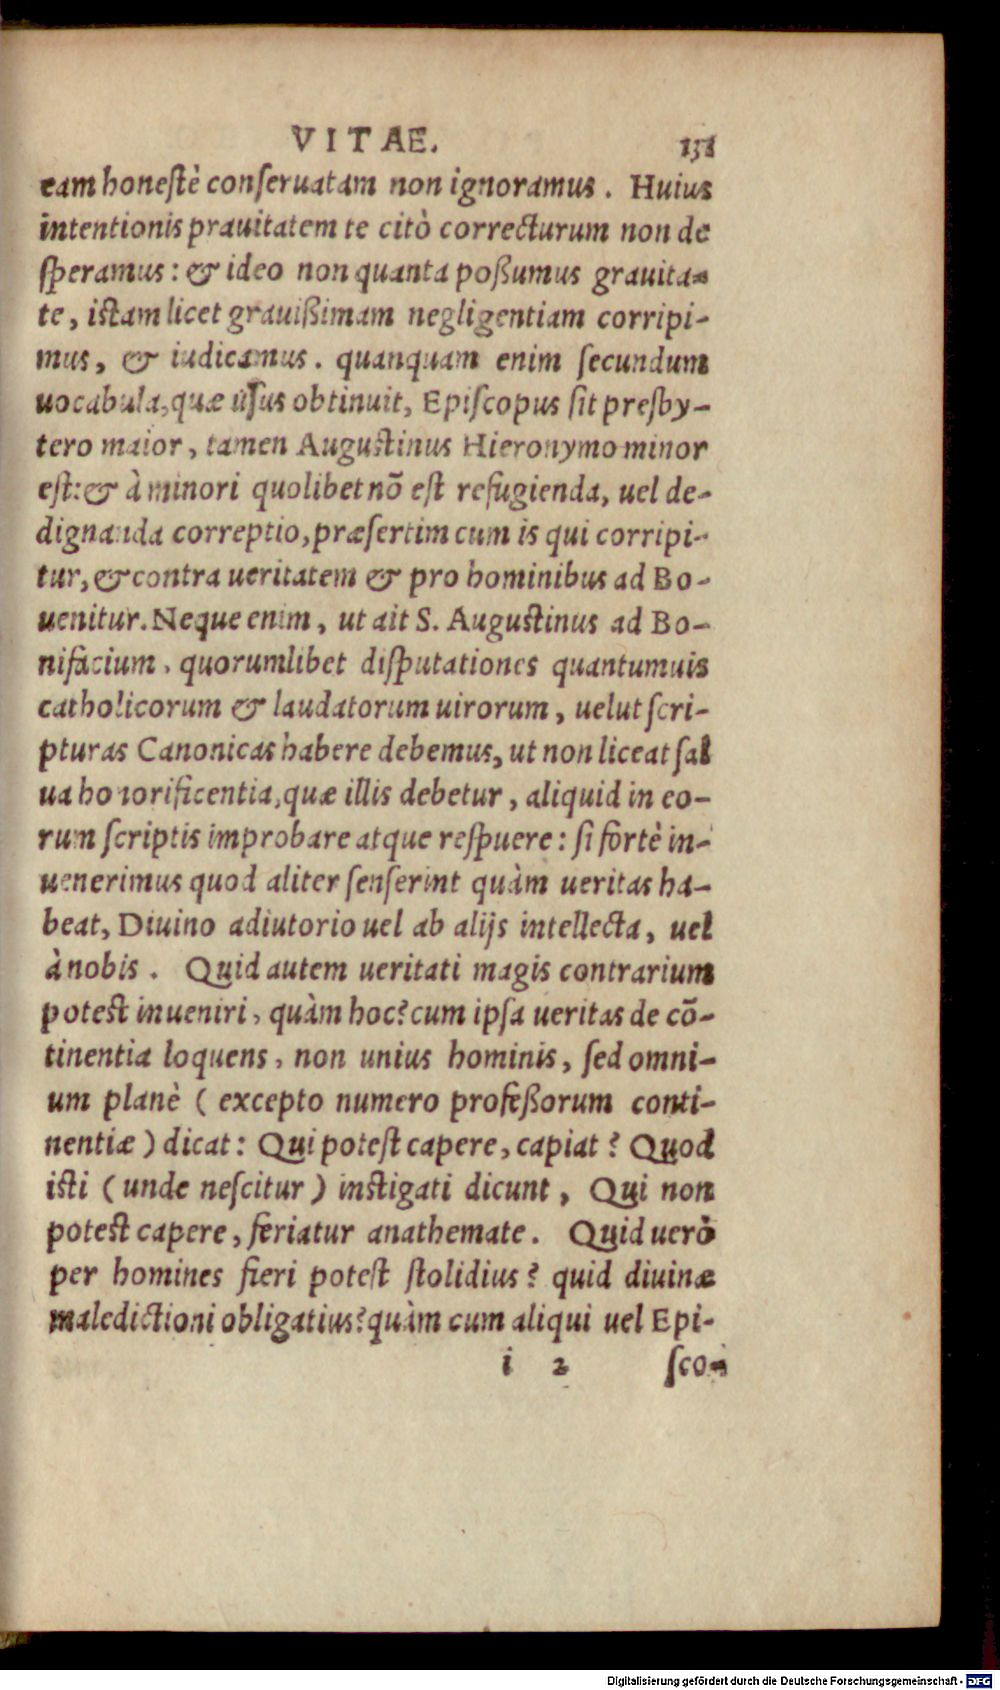 VITAE. 131
eam honestè conseruatam non ignoramus. Huius
intentionis prauitatem te citò correcturum non de
speramus: & ideo non quanta possumus grauita-
te, istam licet grauissimam negligentiam corripi-
mus, & iudicamus. quanquam enim secundum
uocabula, quæ usus obtinuit, Episcopus sit presby-
tero maior, tamen Augustinus Hieronymo minor
est: & à minori quolibet nõ est refugienda, uel de-
dignanda correptio, præsertim cum is qui corripi-
tur, & contra ueritatem & pro hominibus ad Bo-
uenitur. Neque enim, ut ait S. Augustinus ad Bo-
nifacium, quorumlibet disputationes quantumuis
catholicorum & laudatorum uirorum, uelut scri-
pturas Canonicas habere debemus, ut non liceat sal
ua honorificentia, quæ illis debetur, aliquid in eo-
rum scriptis improbare atque respuere: si fortè in-
uenerimus quod aliter senserint quàm ueritas ha-
beat, Diuino adiutorio uel ab alijs intellecta, uel
à nobis. Quid autem ueritati magis contrarium
potest inueniri, quàm hoc? cum ipsa ueritas de cõ-
tinentia loquens, non unius hominis, sed omni-
um planè ( excepto numero professorum conti-
nentiæ ) dicat: Qui potest capere, capiat? Quod
isti ( unde nescitur ) instigati dicunt, Qui non
potest capere, feriatur anathemate. Quid uerò
per homines fieri potest stolidius? quid diuinæ
maledictioni obligatius? quàm cum aliqui uel Epi-
i 2 sco-
Digitalisierung gefördert durch die Deutsche Forschungsgemeinschaft - DFG